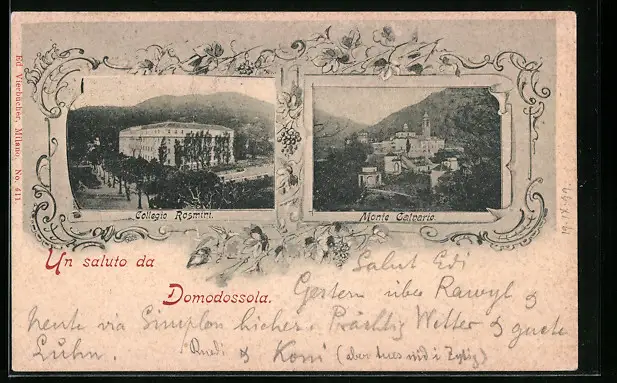 Ed. Vierbücher, Milano, No. 411.
Collegio Rosmini.
Monte Calvario.
Un saluto da
Domodossola.
19.IX.99.
Salut Edi
Gestern über Rawyl &
heute via Simplon hieher. Prächtig Wetter & guete
Luhn.
Ruedi & Koni (aber